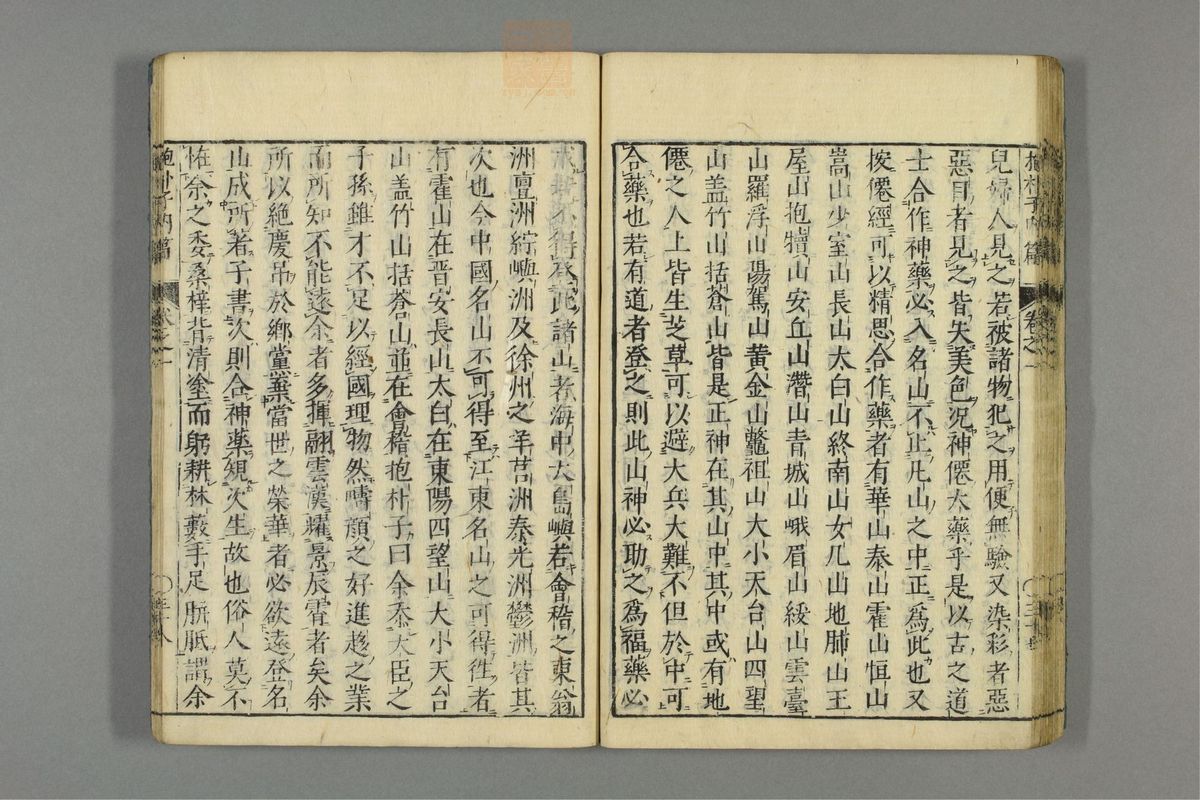 兒婦人見之若被諸物犯之用便無驗又染彩者惡
惡目者見之皆失美色况神僊大藥乎是以古之道
士合作神藥必入名山不止凡山之中正爲此也又
按僊經可以精思合作藥者有華山泰山霍山恒山
嵩山少室山長山太白山終南山女几山地肺山王
屋山抱犢山安丘山濳山青城山峨眉山綏山雲臺
山羅浮山陽駕山黄金山鼈祖山大小天台山四望
山盖竹山括蒼山皆是正神在其山中其中或有地
僊之人上皆生芝草可以避大兵大難不但於中可
合藥也若有道者登之則此山神必助之爲福藥必
成若不得登此諸山者海中大島嶼若會稽之東翁
洲亶洲綜嶼洲及徐州之羊莒洲泰光洲鬱洲皆其
次也今中國名山不可得至江東名山之可得徃者
有霍山在晋安長山太白在東陽四望山大小天台
山盖竹山括蒼山並在會稽抱朴子曰余忝大臣之
子孫雖才不足以經國理物然疇類之好進趍之業
而所知不能遠余者多揮翮雲漢耀景辰霄者矣余
所以絶慶吊於鄉黨棄當世之榮華者必欲遠登名
山成所著子書次則合神藥規次生故也俗人莫不
恠余之委桑梓背清塗而躬耕林藪手足胼胝謂余
抱朴子内篇 卷之一
抱朴子内篇 卷之一 三十八